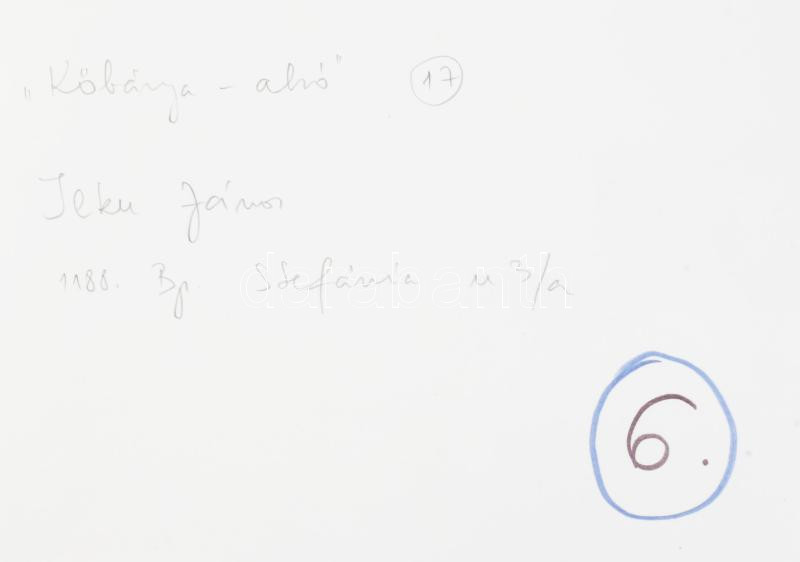 „Kőbánya - alsó” 17
Ilku János
1188. Bp. Stefánia u 3/a
darabanth
6.